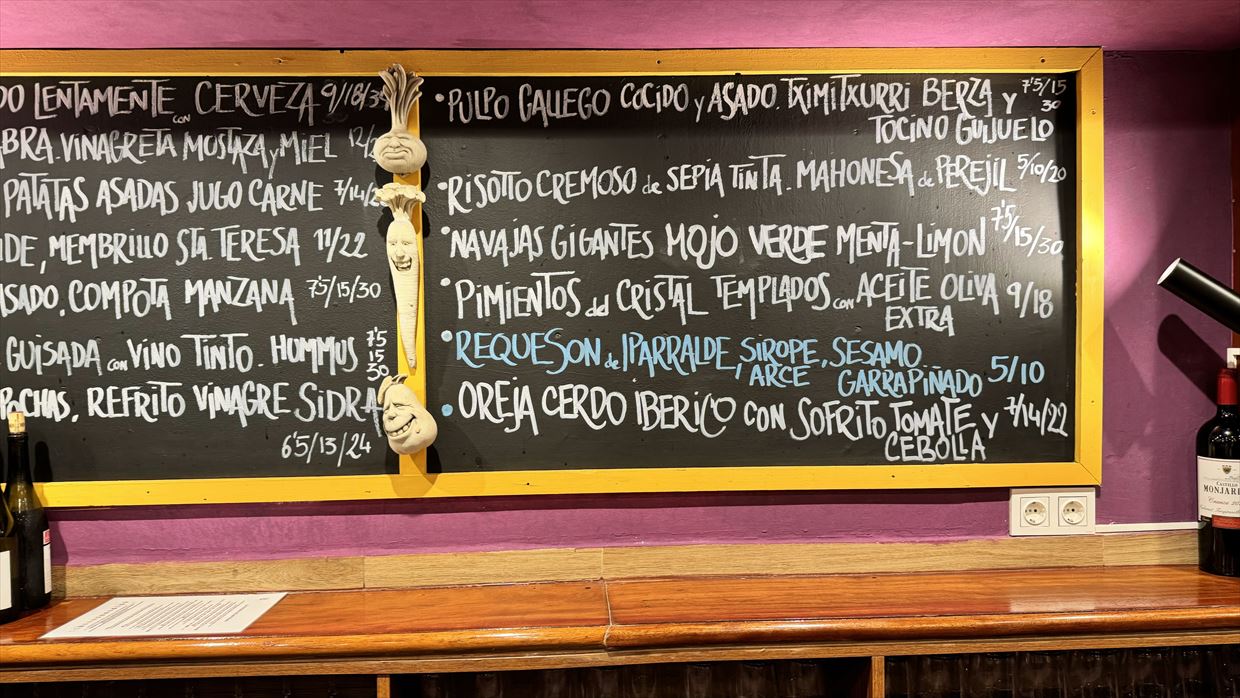 LENTAMENTE con CERVEZA 9/18/3
VINAGRETA MOSTAZA y MIEL 12/2
PATATAS ASADAS JUGO CARNE 7/14/2
MEMBRILLO STA TERESA 11/22
COMPOTA MANZANA 7'5/15/30
GUISADA con VINO TINTO. HUMMUS 7'5
15
30
REFRITO VINAGRE SIDRA
6'5/13/24
•PULPO GALLEGO COCIDO y ASADO. TXIMITXURRI BERZA y 7'5/15
30
TOCINO GUIJUELO
•RISOTTO CREMOSO de SEPIA TINTA. MAHONESA de PEREJIL 5/10/20
•NAVAJAS GIGANTES MOJO VERDE MENTA-LIMON 7'5/15/30
•PIMIENTOS del CRISTAL TEMPLADOS con ACEITE OLIVA 9/18
EXTRA
•REQUESON de IPARRALDE, SIROPE, SESAMO
ARCE GARRAPIÑADO 5/10
•OREJA CERDO IBERICO CON SOFRITO TOMATE y 7/14/22
CEBOLLA
CASTILLO
Crianza